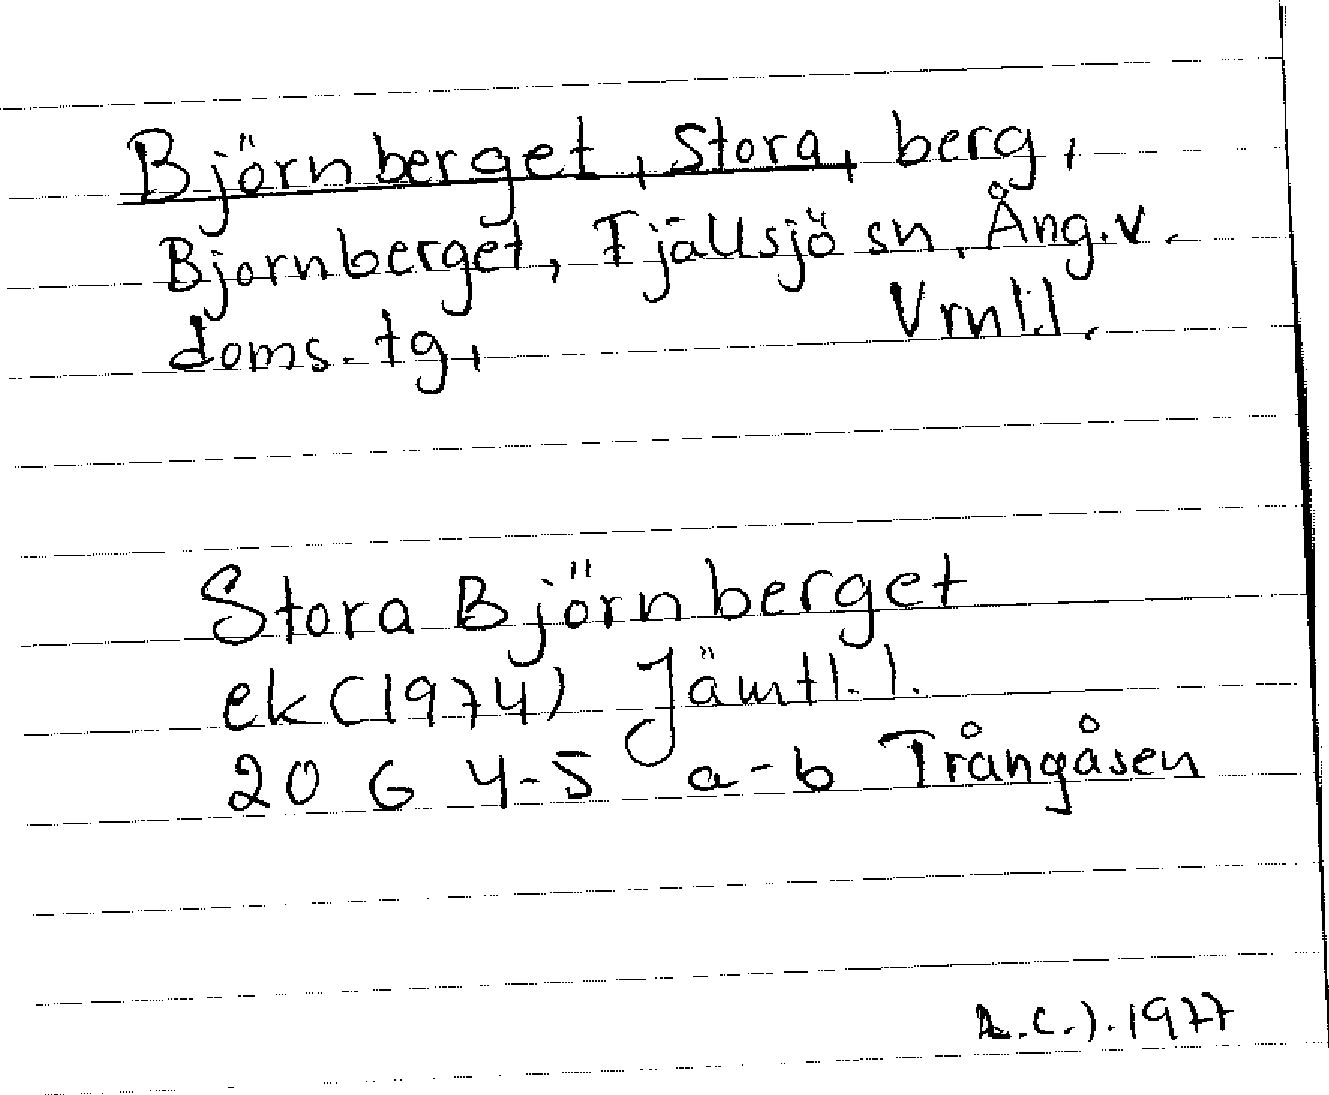 Björnberget, Stora, berg,
Bjornberget, Fjällsjö sn, Ång.v.
doms.tg, Vrnl.l.
Stora Björnberget
ek (1974) Jämtl.l.
20 G 4-5 a-b Trångåsen
A.C.J. 1977